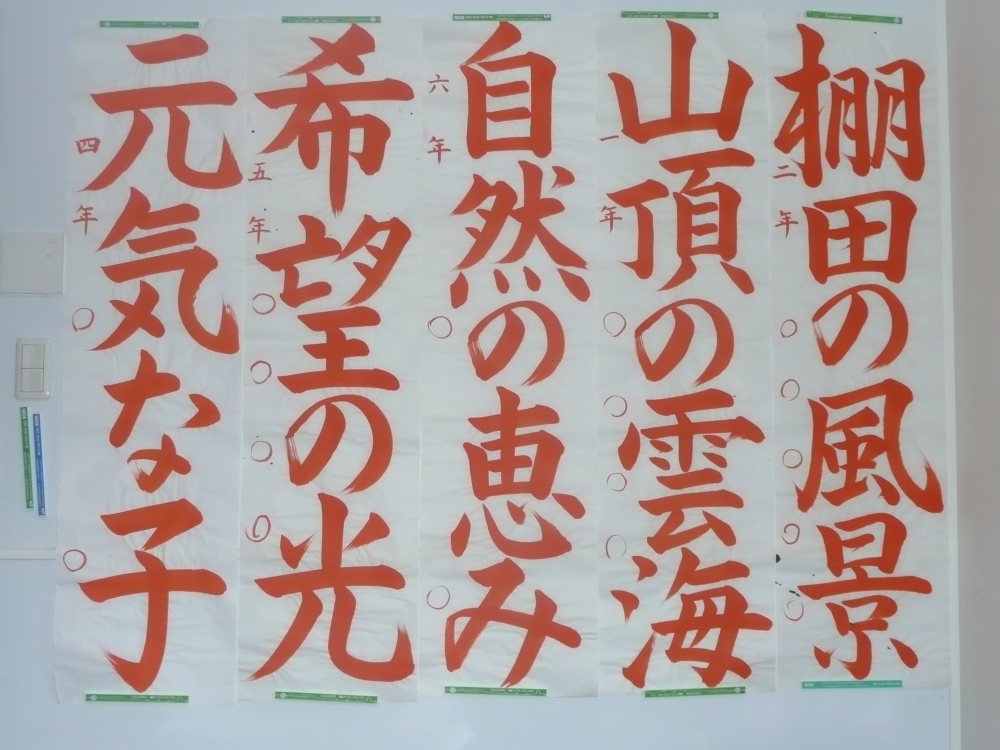 棚田の風景
二年
山頂の雲海
一年
自然の恵み
六年
希望の光
五年
元気な子
四年